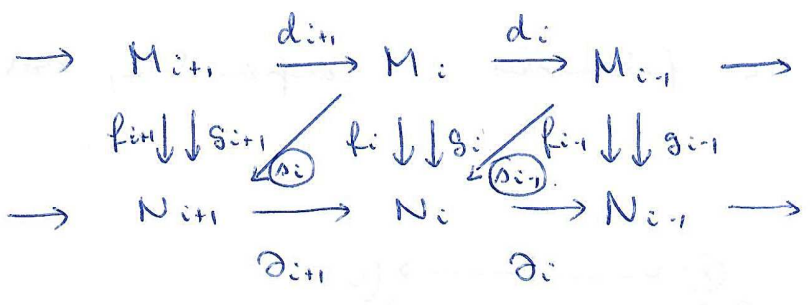 d_{i+1} d_i
→ M_{i+1} → M_i → M_{i-1} →
f_{i+1} ↓↓ g_{i+1} s_i f_i ↓↓ g_i s_{i-1} f_{i-1} ↓↓ g_{i-1}
→ N_{i+1} → N_i → N_{i-1} →
∂_{i+1} ∂_i